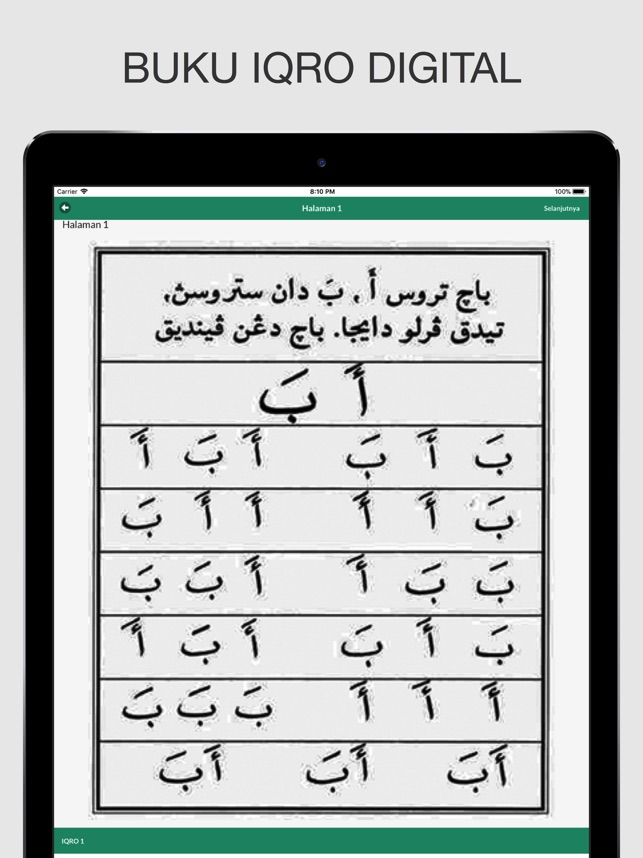 BUKU IQRO DIGITAL
Carrier 8:10 PM 100%
Halaman 1 Selanjutnya
Halaman 1
باچ تروس أَ , بَ دان ستروسڽ,
تيدق ڤرلو دايجا. باچ دڠن ڤينديق
أَ بَ
بَ أَ بَ أَ بَ أَ
بَ أَ أَ أَ أَ بَ
بَ بَ أَ أَ بَ بَ
بَ أَ بَ أَ بَ أَ
أَ أَ أَ بَ بَ بَ
أَبَ أَبَ أَبَ
IQRO 1